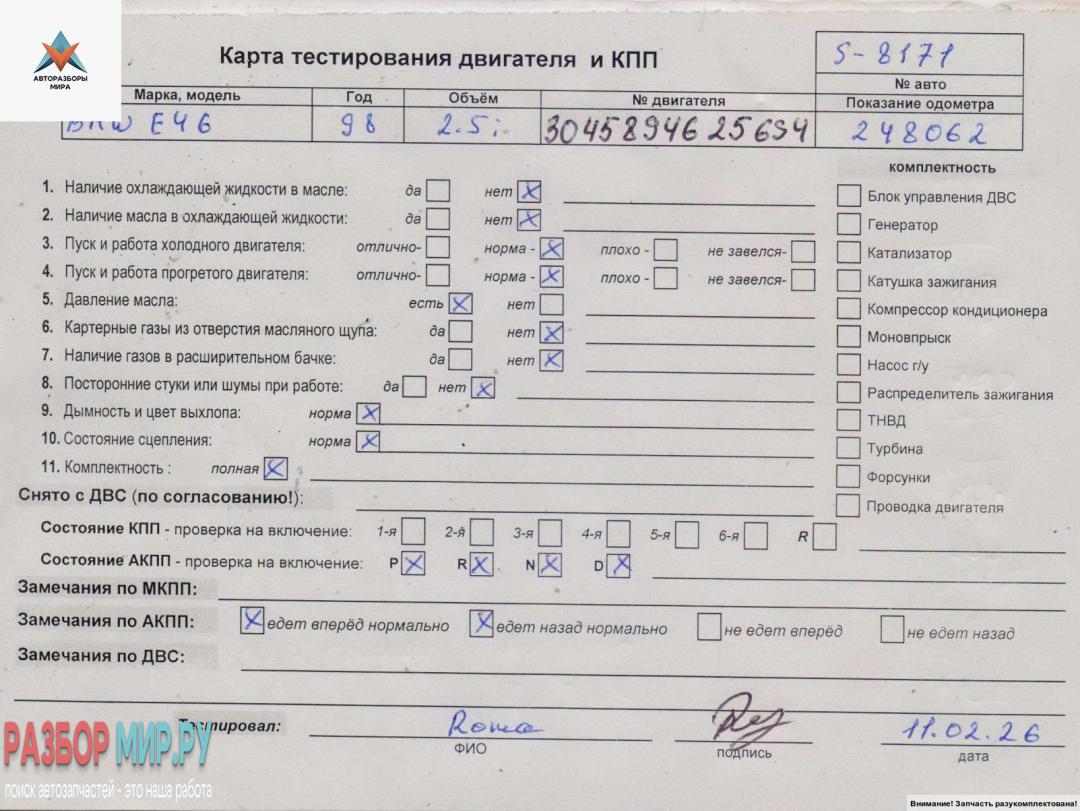 АВТОРАЗБОРЫ
МИРА
Карта тестирования двигателя и КПП
S-8171
№ авто
Марка, модель Год Объём № двигателя Показание одометра
BMW E46 98 2.5i 30458946256S4 248062
комплектность
1. Наличие охлаждающей жидкости в масле: да нет X
Блок управления ДВС
2. Наличие масла в охлаждающей жидкости: да нет X
Генератор
3. Пуск и работа холодного двигателя: отлично- норма - X плохо - не завелся-
Катализатор
4. Пуск и работа прогретого двигателя: отлично- норма - X плохо - не завелся-
Катушка зажигания
5. Давление масла: есть X нет
Компрессор кондиционера
6. Картерные газы из отверстия масляного щупа: да нет X
Моновпрыск
7. Наличие газов в расширительном бачке: да нет X
Насос г/у
8. Посторонние стуки или шумы при работе: да нет X
Распределитель зажигания
9. Дымность и цвет выхлопа: норма X
ТНВД
10. Состояние сцепления: норма X
Турбина
11. Комплектность : полная X
Форсунки
Снято с ДВС (по согласованию!):
Проводка двигателя
Состояние КПП - проверка на включение: 1-я 2-я 3-я 4-я 5-я 6-я R
Состояние АКПП - проверка на включение: P X R X N X D X
Замечания по МКПП:
Замечания по АКПП: X едет вперёд нормально X едет назад нормально не едет вперёд не едет назад
Замечания по ДВС:
Тестировал: Roma 11.02.26
ФИО подпись дата
РАЗБОР МИР.РУ
поиск автозапчастей - это наша работа
Внимание! Запчасть разукомплектована!